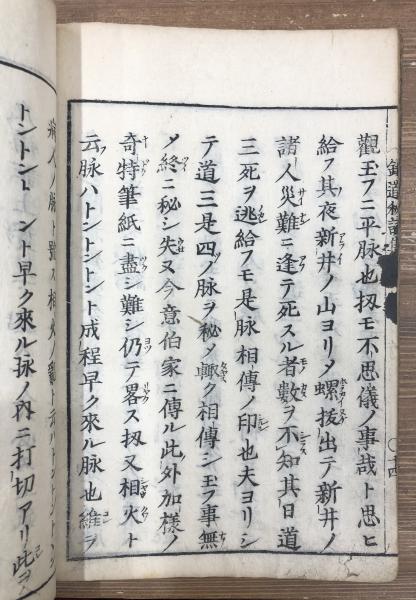 觀玉フニ平脉也扨モ不思儀ノ事哉ト思ヒ
給フ其夜新井ノ山ヨリ螺拔出テ新井ノ
諸人災難ニ逢テ死スル者數ヲ不知其日道
三死ヲ逃給フモ是脉相傳ノ印也夫ヨリシ
テ道三是四ノ脉ヲ秘ノ相傳シ玉フ事無
ノ終ニ秘シ失又今意伯家ニ傳ル此外加樣ノ
奇特筆紙ニ盡シ難シ仍テ畧ス扨又相火ト
云脉ハトントントント成程早ク來ル脉也維ヲ
トントント ント早ク來ル脉ノ内ニ打切アリ此ヲ